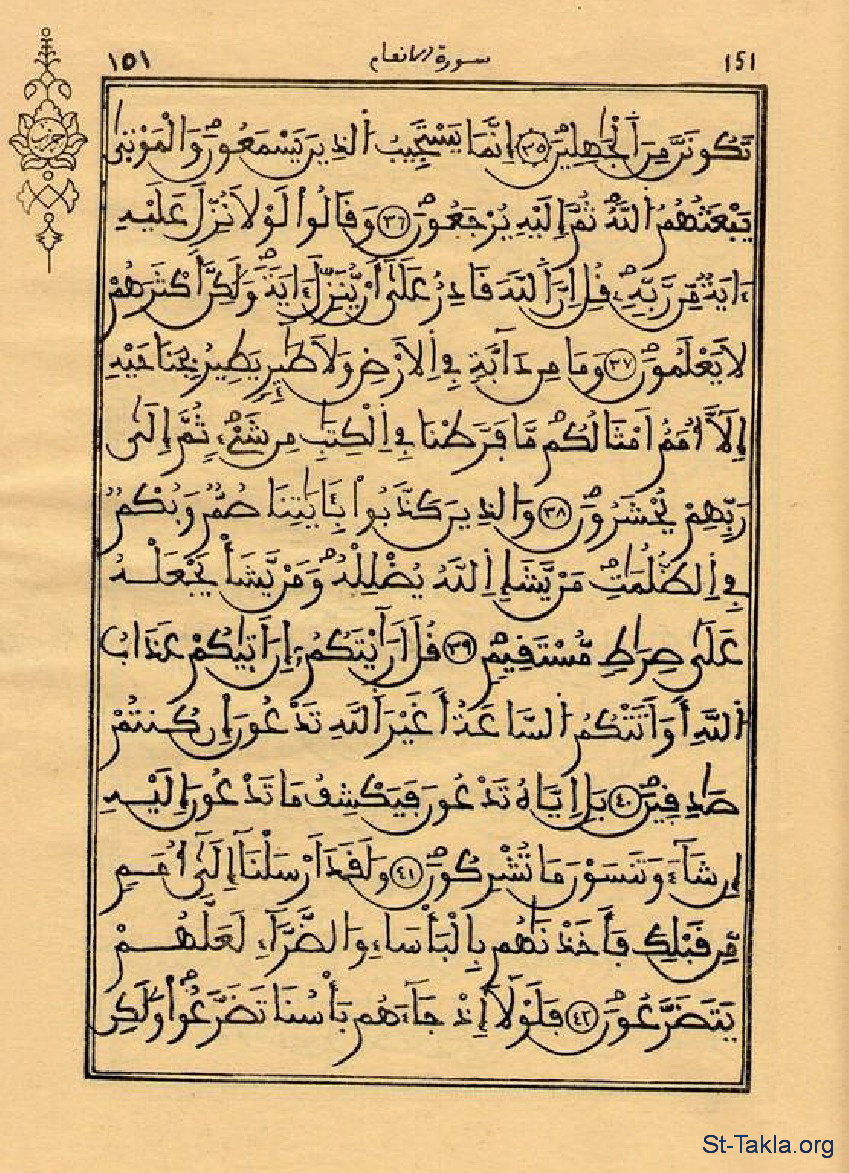 151 سورة الانعام ١٥١
حزب
تَكُونَنَّ مِنَ ٱلْجَٰهِلِينَ ٣٥ إِنَّمَا يَسْتَجِيبُ ٱلذِينَ يَسْمَعُونَ وَالْمَوْتَىٰ
يَبْعَثُهُمُ اللَّهُ ثُمَّ إِلَيْهِ يُرْجَعُونَ ٣٦ وَقَالُوا لَوْلَا نُزِّلَ عَلَيْهِ
ءَايَةٌ مِّن رَّبِّهِ قُلْ إِنَّ اللَّهَ قَادِرٌ عَلَىٰ أَنْ يُّنَزِّلَ ءَايَةً وَلَٰكِنَّ أَكْثَرَهُمْ
لَا يَعْلَمُونَ ٣٧ وَمَا مِن دَآبَّةٍ فِي اِلَارْضِ وَلَا طَٰٓئِرٍ يَطِيرُ بِجَنَاحَيْهِ
إِلَّآ أُمَمٌ اَمْثَالُكُم مَّا فَرَّطْنَا فِي اِلْكِتَٰبِ مِن شَيْءٍ ثُمَّ إِلَىٰ
رَبِّهِمْ يُحْشَرُونَ ٣٨ وَالذِينَ كَذَّبُوا بِـَٔايَٰتِنَا صُمٌّ وَبُكْمٌ
فِي اِلظُّلُمَٰتِ مَنْ يَّشَإِ اِللَّهُ يُضْلِلْهُ وَمَنْ يَّشَأْ يَجْعَلْهُ
عَلَىٰ صِرَٰطٍ مُّسْتَقِيمٍ ٣٩ قُلَ اَرَٰٓيْتَكُمُ إِنَ اَتَىٰكُمْ عَذَابُ
اُللَّهِ أَوَ اَتَتْكُمُ اُلسَّاعَةُ أَغَيْرَ اَللَّهِ تَدْعُونَ إِن كُنتُمْ
صَٰدِقِينَ ٤٠ بَلِ اِيَّاهُ تَدْعُونَ فَيَكْشِفُ مَا تَدْعُونَ إِلَيْهِ
إِن شَآءَ وَتَنسَوْنَ مَا تُشْرِكُونَ ٤١ وَلَقَدَ اَرْسَلْنَآ إِلَىٰٓ أُمَمٍ
مِّن قَبْلِكَ فَأَخَذْنَٰهُم بِالْبَأْسَآءِ وَالضَّرَّآءِ لَعَلَّهُمْ
يَتَضَرَّعُونَ ٤٢ فَلَوْلَآ إِذْ جَآءَهُم بَأْسُنَا تَضَرَّعُوا وَلَٰكِن
St-Takla.org